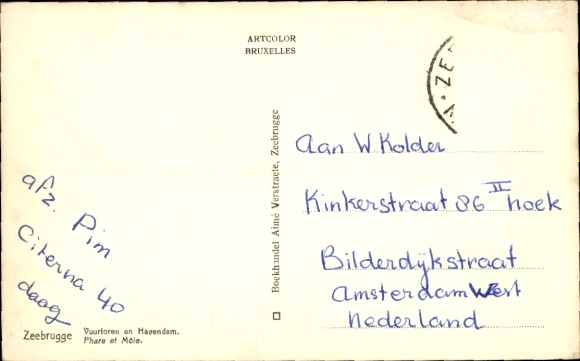 ARTCOLOR
BRUXELLES
ZE
Aan W. Kolder
Kinkerstraat 86 II hoek
Bilderdijkstraat
Amsterdam West
Nederland
afz. Pim
Citerna 40
daag
Boekhandel Aimé Verstraete, Zeebrugge
Zeebrugge Vuurtoren en Havendam.
Phare et Môle.